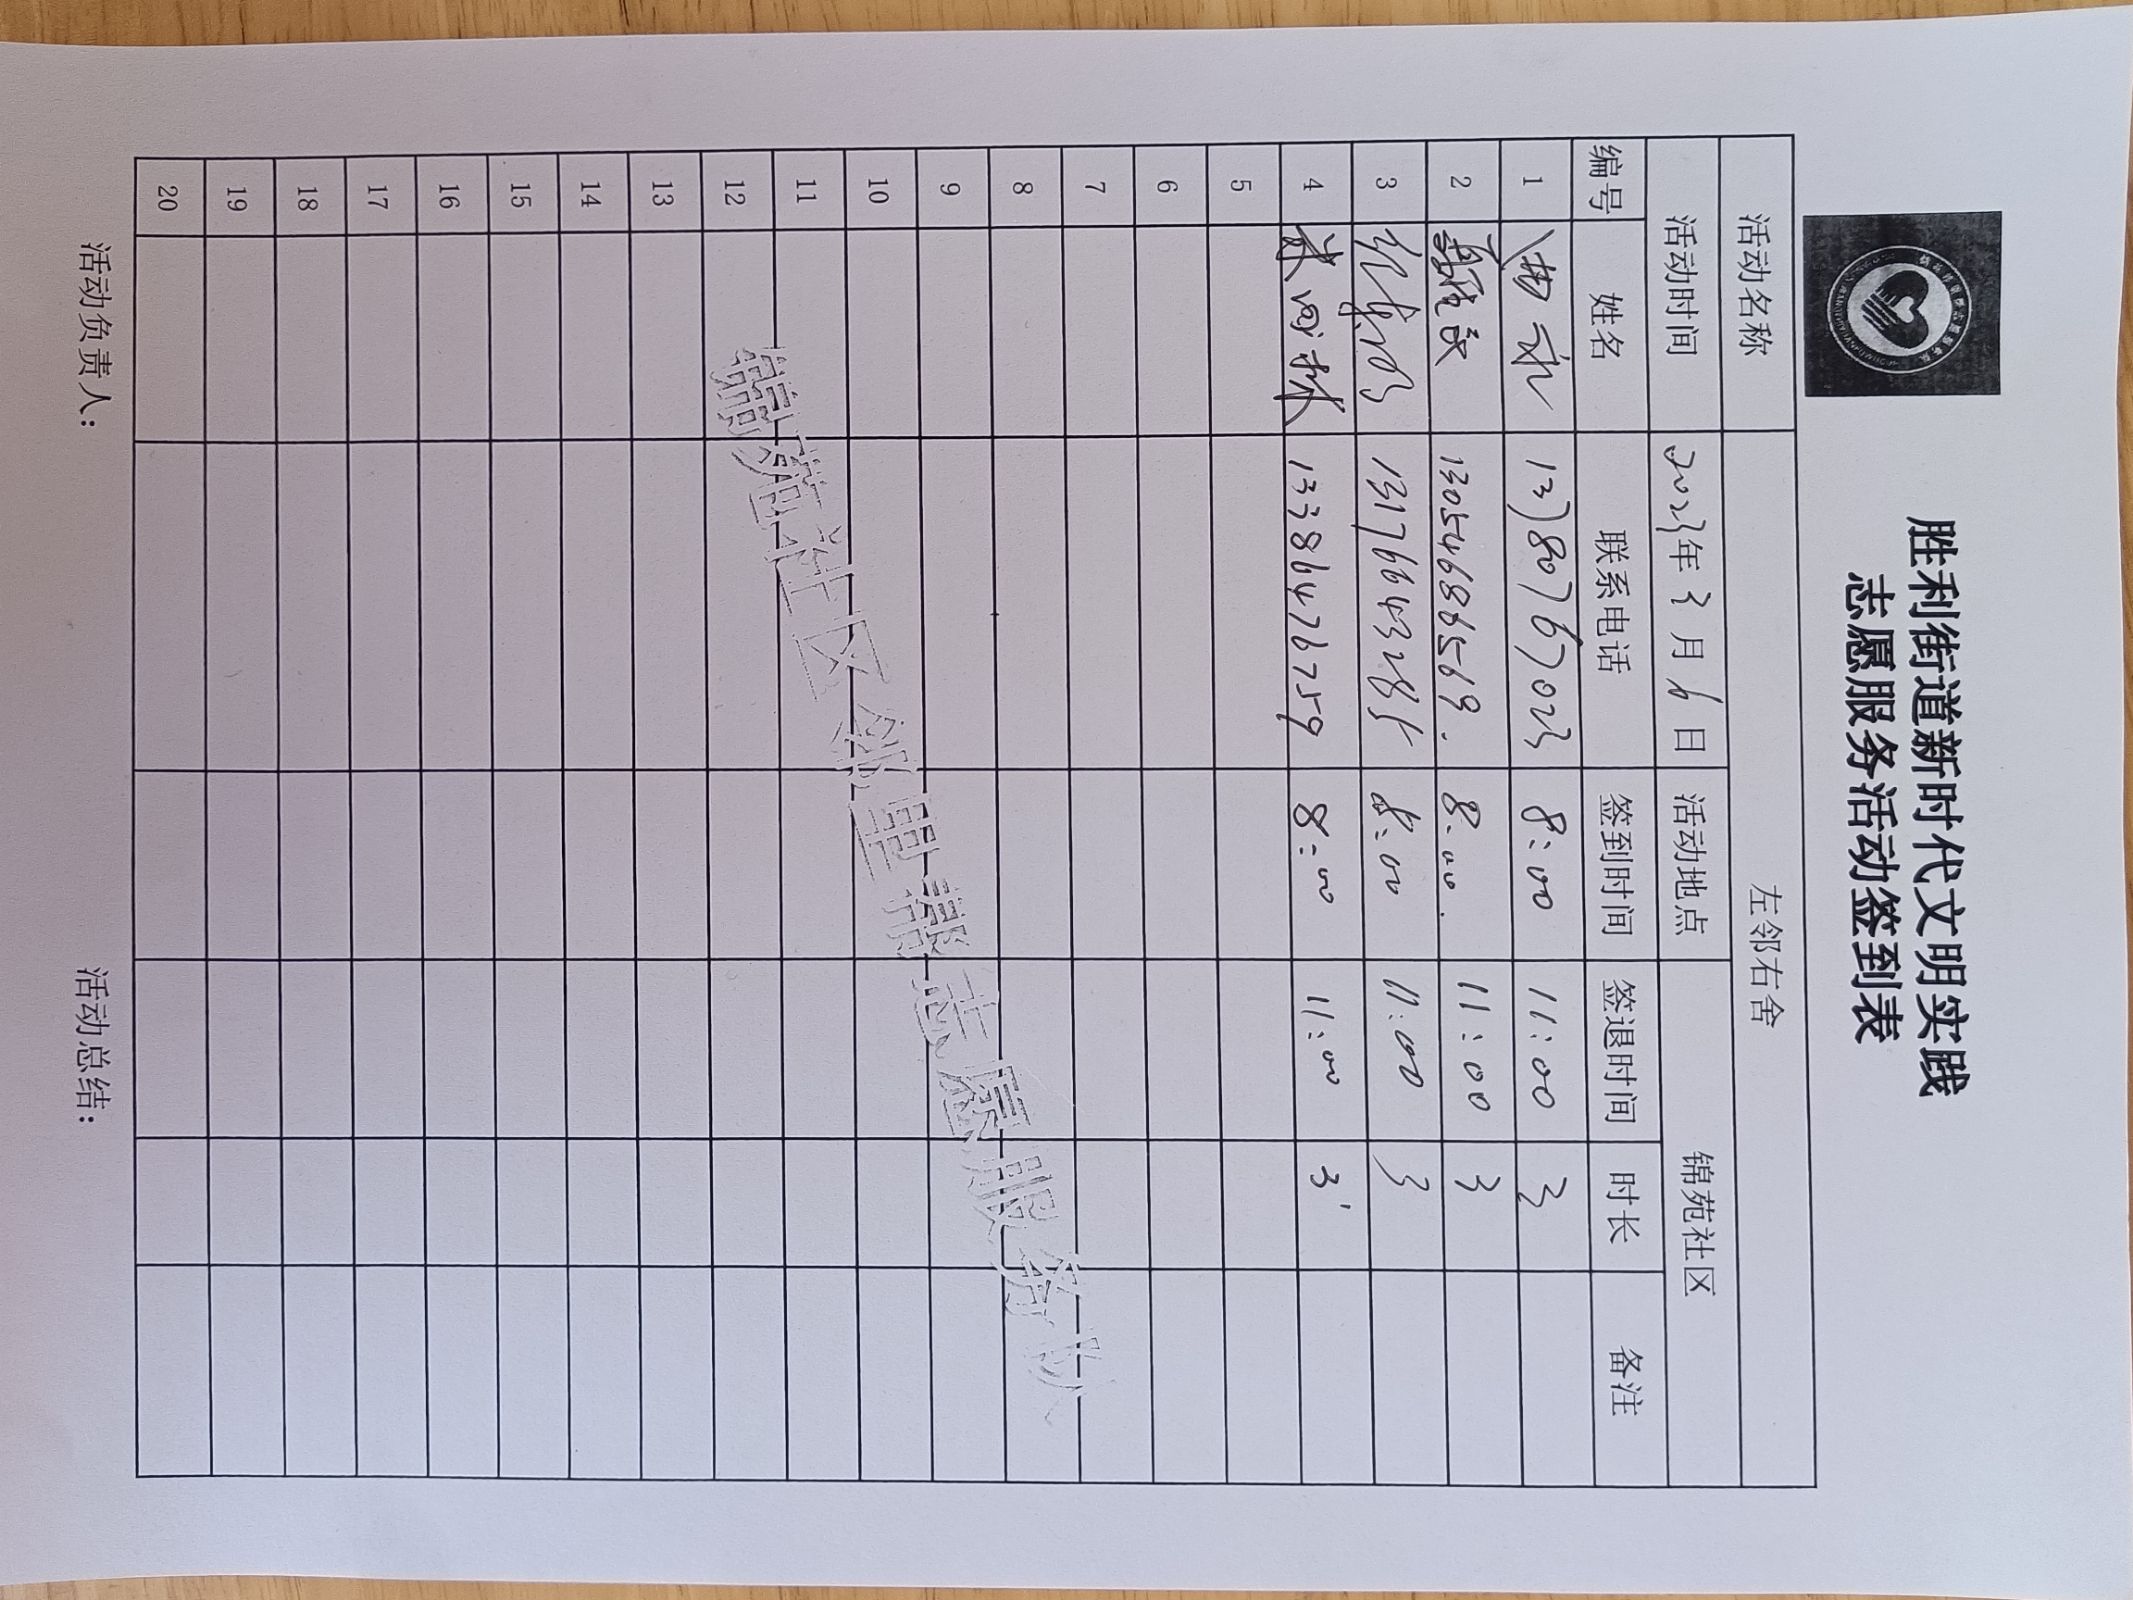 胜利街道新时代文明实践
志愿服务活动签到表
活动名称 左邻右舍
活动时间 2023年3月6日 活动地点 锦苑社区
编号 姓名 联系电话 签到时间 签退时间 时长 备注
1 13780767023 8:00 11:00 3
2 13054686569. 8:00. 11:00 3
3 13176643285 8:00 11:00 3
4 13386476759 8:00 11:00 3
5
6
7
8
9
10
11
12
13
14
15
16
17
18
19
20
锦苑社区邻里帮志愿服务队
活动负责人： 活动总结：